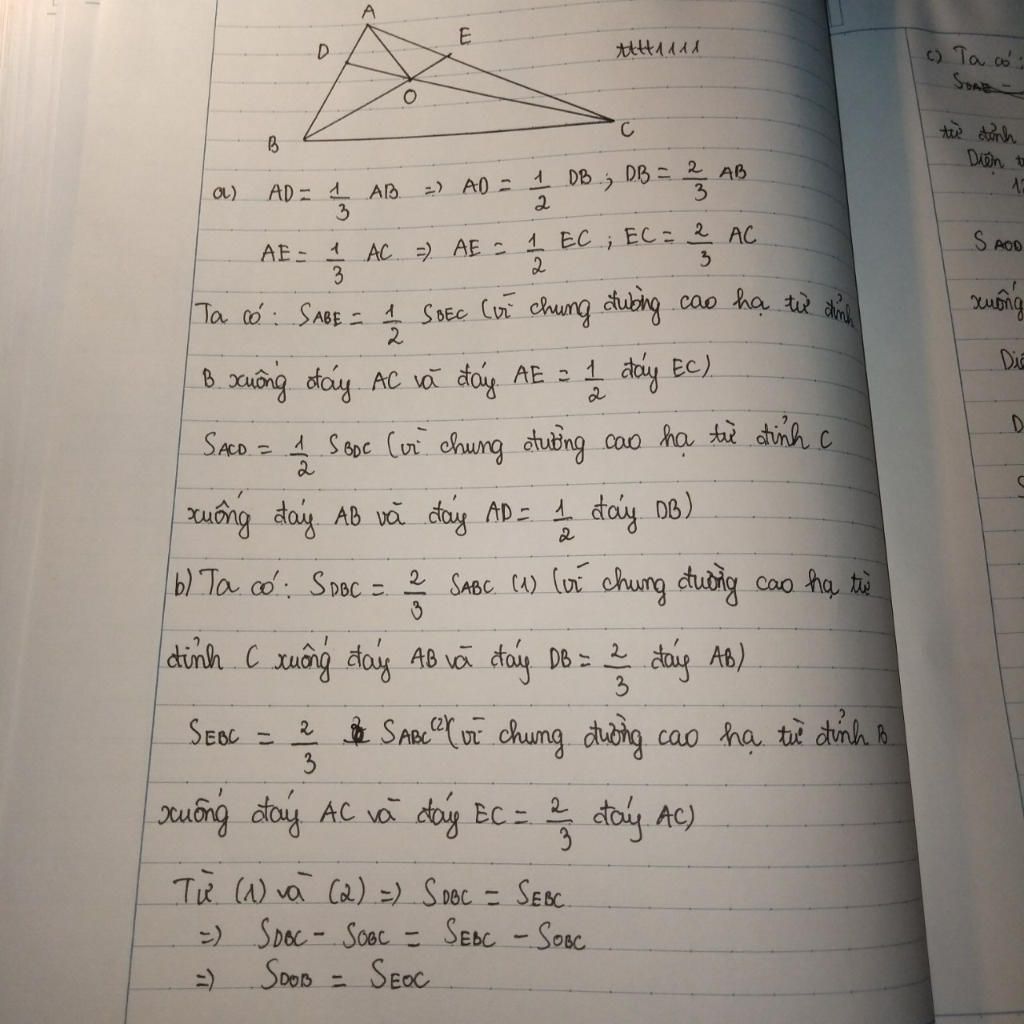 A
D
E
O
B
C
c) Ta có:
từ đỉnh
Diện
S AOD
xuống
a) AD = 1/3 AB => AD = 1/2 DB ; DB = 2/3 AB
AE = 1/3 AC => AE = 1/2 EC ; EC = 2/3 AC
Ta có: SABE = 1/2 SBEC (vì chung đường cao hạ từ đỉnh
B xuống đáy AC và đáy AE = 1/2 đáy EC)
SACD = 1/2 SBDC (vì chung đường cao hạ từ đỉnh C
xuống đáy AB và đáy AD = 1/2 đáy DB)
b) Ta có: SDBC = 2/3 SABC (1) (vì chung đường cao hạ từ
đỉnh C xuống đáy AB và đáy DB = 2/3 đáy AB)
SEBC = 2/3 SABC (2) (vì chung đường cao hạ từ đỉnh B
xuống đáy AC và đáy EC = 2/3 đáy AC)
Từ (1) và (2) => SDBC = SEBC
=> SDBC - SOBC = SEBC - SOBC
=> SDOB = SEOC